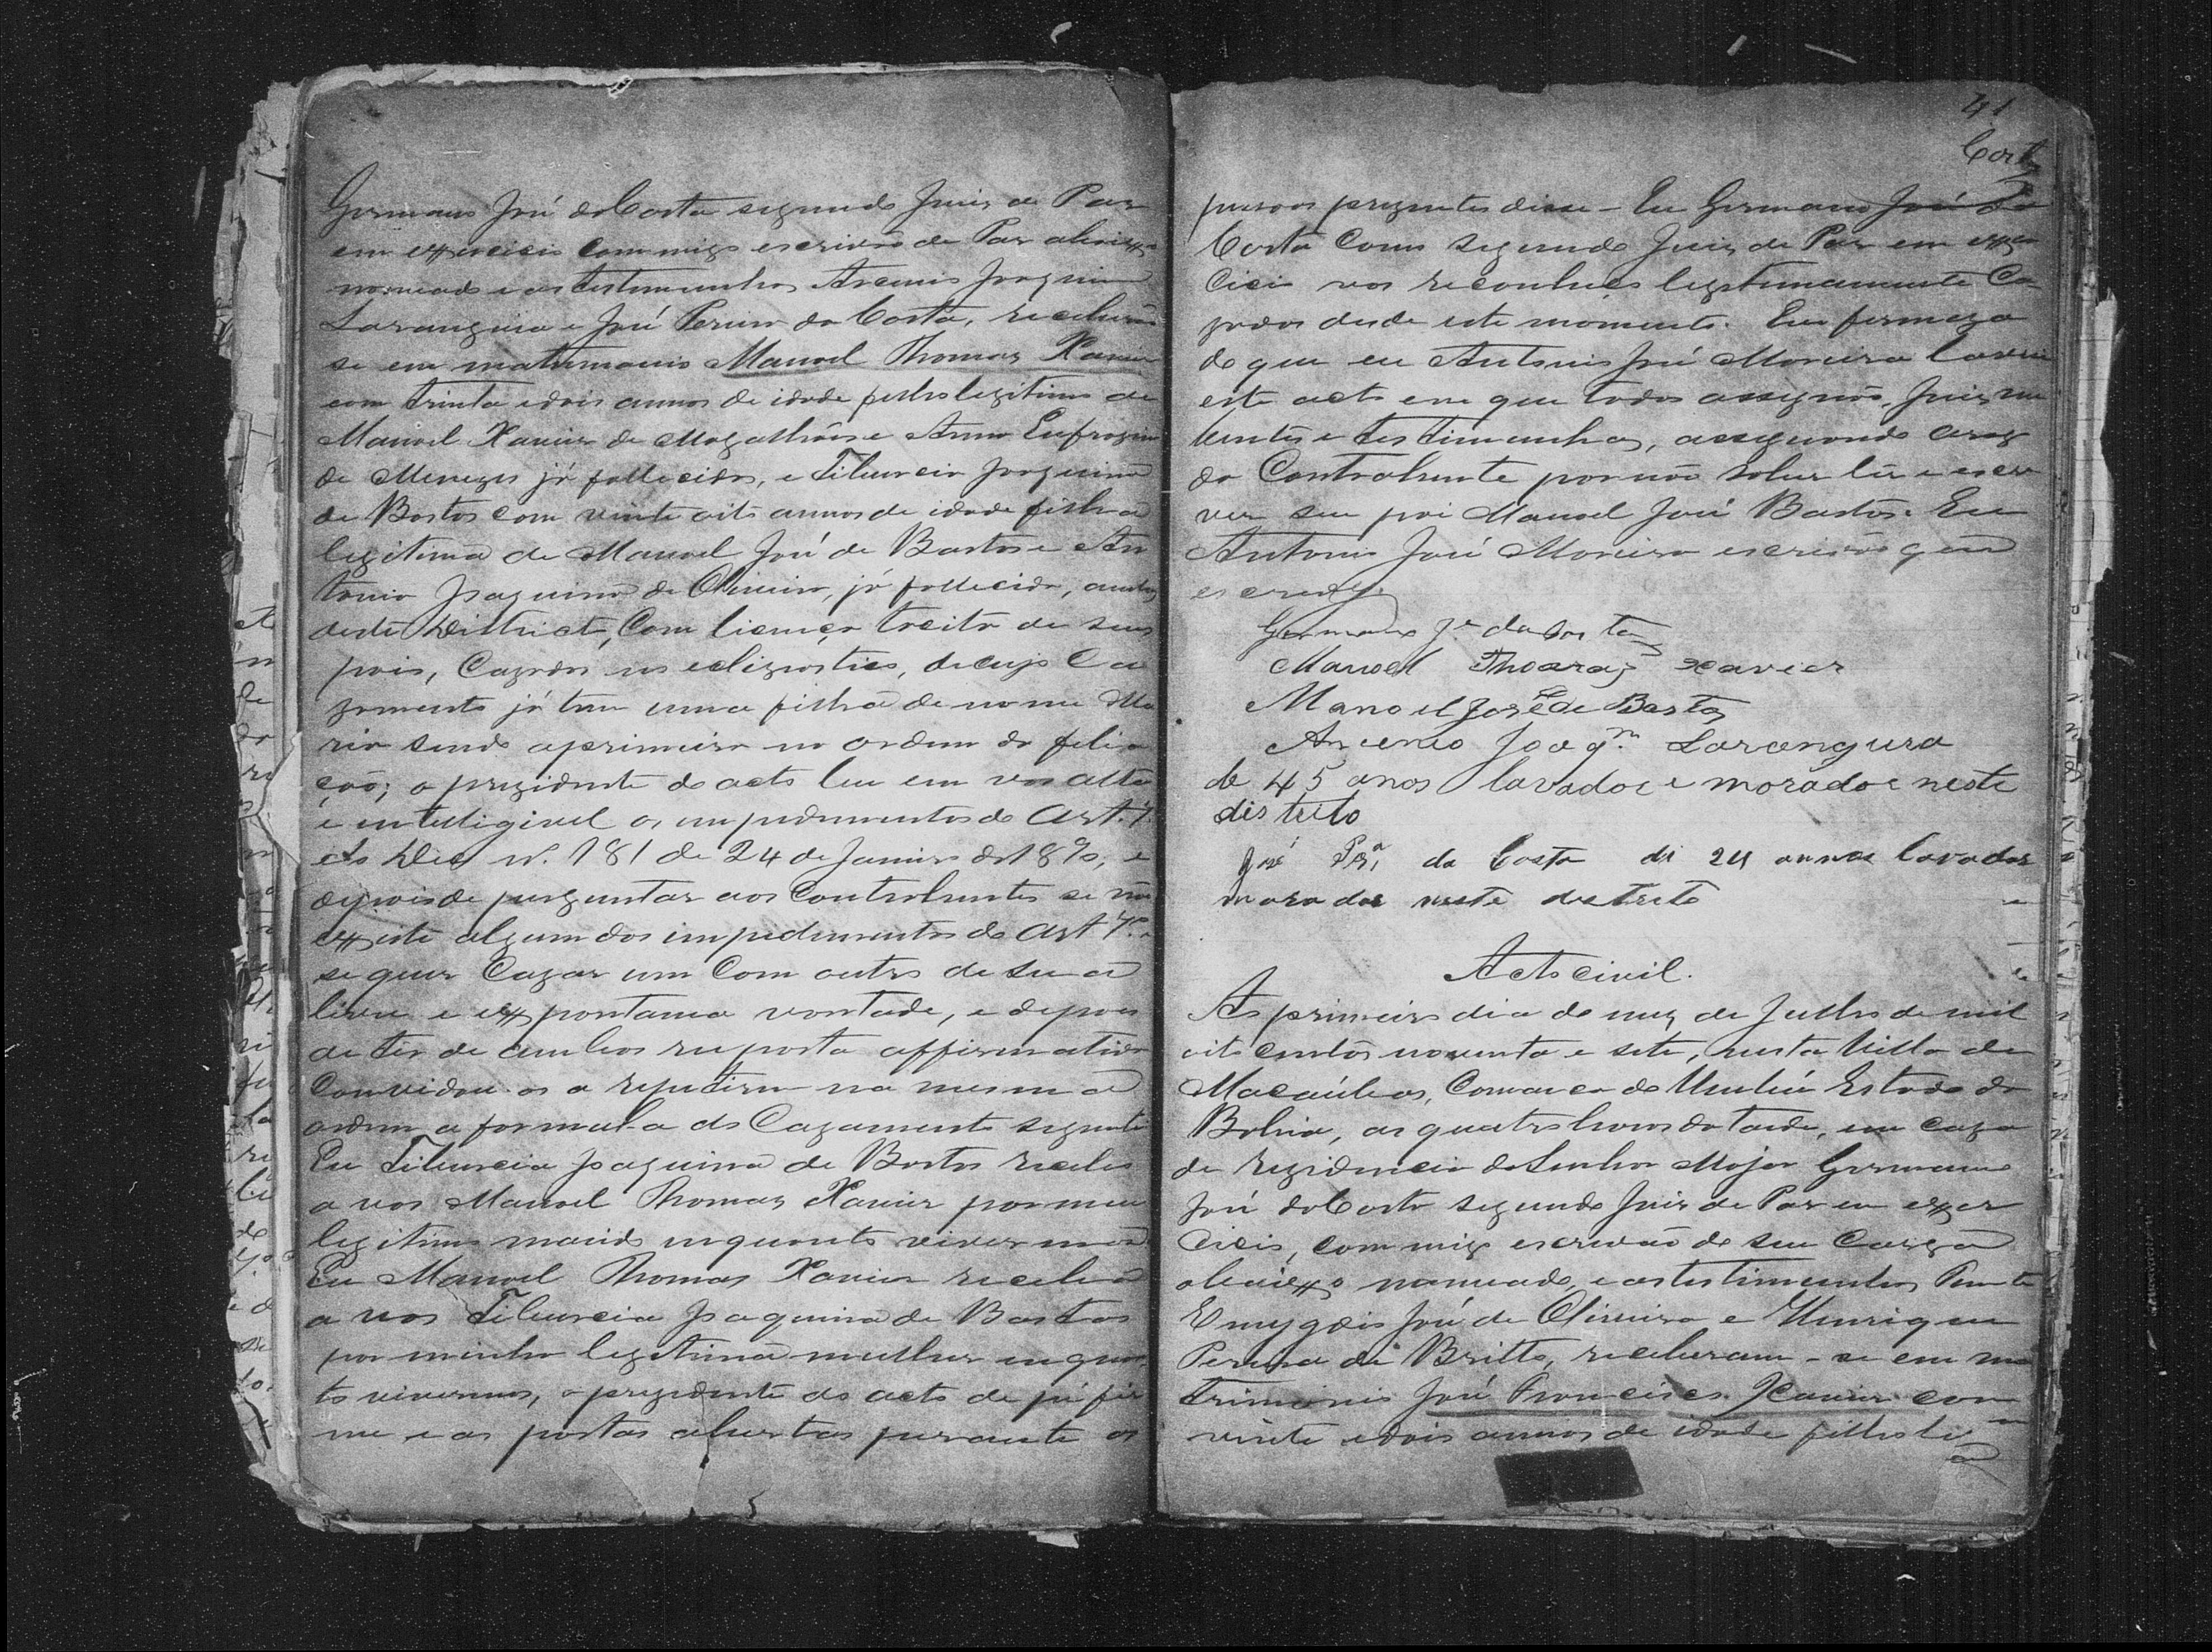 Germano José da Costa segundo Juiz de Paz
em exercicio commigo escrivão de Paz abaixo
nomeado e as testimunhas Arcenio Joaquim
Larangeira e José Pereira da Costa, receberão
se em matrimonio Manoel Thomaz Xavier
com trinta e dois annos de idade filho legitimo de
Manoel Xavier de Magalhães e Anna Eufrozina
de Menezes já fallecidos, e Tiburcia Joaquina
de Bastos com vinte oito annos de idade filha
legitima de Manoel José de Bastos e An
tonia Joaquina de Oliveira, já fallecida, ambos
deste Districto, Com licença tacita de seus
pais, Cazados no eclizиastico, de cujo Ca
zamento já tem uma filha de nome Ma
ria sendo a primeira na ordem da filia
ção; o prezidente do acto leu em vos alta
e inteligivel os impedimentos do Art. 7.
do Dec N. 181 de 24 de Janeiro de 1890, e
depois de perguntar aos Contrahentes se não
existe algum dos impedimentos do Art 7º.
se quer Cazar um Com outro de sua
livre e expontania vontade, e depois
de ter de ambos resposta affirmativa
Convidou-os a repetirem na mesma
ordem a formula do Cazamento seguinte
Eu Tiburcia Joaquina de Bastos recebo
a vos Manoel Thomaz Xavier por meu
legitimo marido enquanto vivermos
Eu Manoel Thomaz Xavier recebo
a vos Tiburcia Joaquina de Bastos
por minha legitima mulher enquan
to vivermos, o prezidente do acto de pé fir
me e as portas abertas perante as
41
Costa
pessoas prezentes disse - Eu Germano José da
Costa Como segundo Juiz de Paz em exer
Cicio vos reconheço legitimamente Ca
zados desde este momento. Em firmeza
do que eu Antonio José Moreira lavrei
este acto em que todos assignão, Juiz,
e testimunhas, assignando arogo
da Contrahente por não saber ler e escre
ver seu pai Manoel José Bastos. Eu
Antonio José Moreira escrivão que
escrevy.
Germano Jé da Costa
Manoel Thomaz Xavier
Manoel José de Bastos
Arcenio Joaqm. Larangera
de 45 anos lavador e morador neste
distrito
José Pra. da Costa de 24 annos lavador
morador neste destrito
Acto civil.
Ao primeiro dia do mez de Julho de mil
oito centos noventa e sete, nesta Villa de
Macaúbas, Comarca do Urubú Estado da
Bahia, as quatro horas da tarde, em caza
de rezidencia do Senhor Major Germano
José da Costa segundo Juiz de Paz em exer
Cicio, com migo escrivão de seu Cargo
abaixo nomeado, e as testimunhas Tente
Emygdio José de Oliveira e Henrique
Pereira de Britto, receberam-se em ma
trimonio José Francisco Xavier com
vinte e dois annos de idade filho le